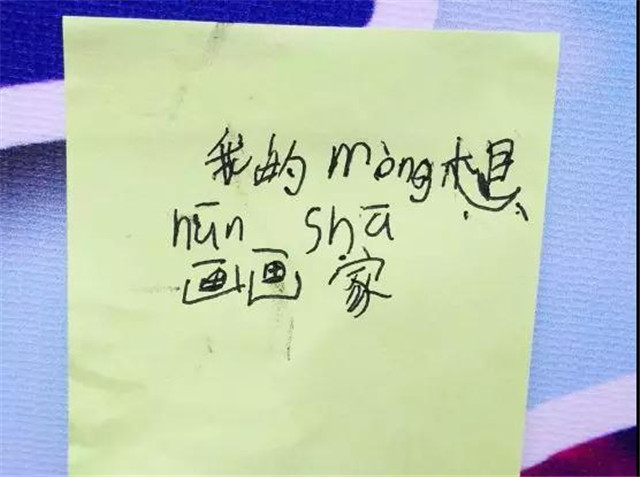 我的mòng想
nūn shā
画画家